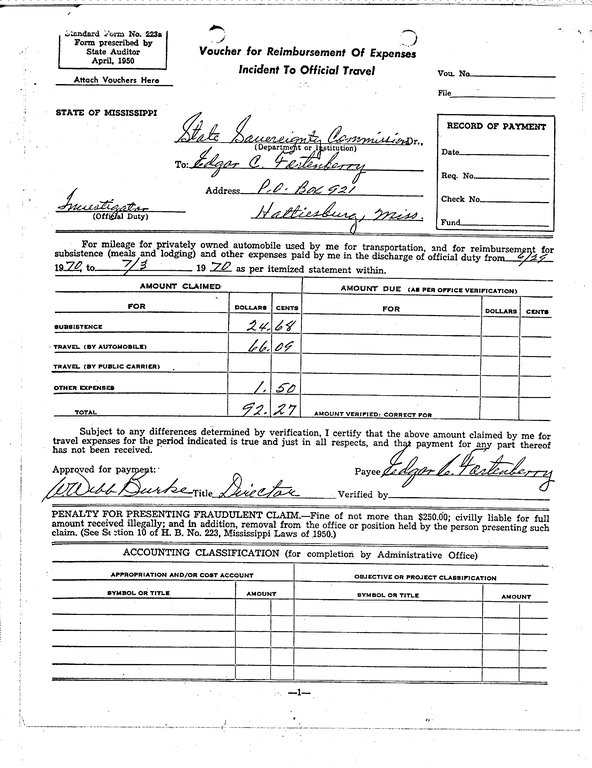 Standard Form No. 223a
Form prescribed by
State Auditor
April, 1950
Attach Vouchers Here
Voucher for Reimbursement Of Expenses
Incident To Official Travel
Vou. No.
File
STATE OF MISSISSIPPI
State Sovereignty Commission Dr.,
(Department or Institution)
To: Edgar C. Fortenberry
Address P.O. Box 921
Investigator
(Official Duty)
Hattiesburg, Miss.
RECORD OF PAYMENT
Date
Req. No.
Check No.
Fund
For mileage for privately owned automobile used by me for transportation, and for reimbursement for
subsistence (meals and lodging) and other expenses paid by me in the discharge of official duty from 6/29
1970, to 7/3 1970 as per itemized statement within.
AMOUNT CLAIMED AMOUNT DUE (AS PER OFFICE VERIFICATION)
FOR DOLLARS CENTS FOR DOLLARS CENTS
SUBSISTENCE 24.68
TRAVEL (BY AUTOMOBILE) 66.09
TRAVEL (BY PUBLIC CARRIER)
OTHER EXPENSES 1.50
TOTAL 92.27 AMOUNT VERIFIED: CORRECT FOR
Subject to any differences determined by verification, I certify that the above amount claimed by me for
travel expenses for the period indicated is true and just in all respects, and that payment for any part thereof
has not been received.
Approved for payment: Payee Edgar C. Fortenberry
W Webb Burke Title Director Verified by
PENALTY FOR PRESENTING FRAUDULENT CLAIM.—Fine of not more than $250.00; civilly liable for full
amount received illegally; and in addition, removal from the office or position held by the person presenting such
claim. (See Section 10 of H. B. No. 223, Mississippi Laws of 1950.)
ACCOUNTING CLASSIFICATION (for completion by Administrative Office)
APPROPRIATION AND/OR COST ACCOUNT OBJECTIVE OR PROJECT CLASSIFICATION
SYMBOL OR TITLE AMOUNT SYMBOL OR TITLE AMOUNT
—1—